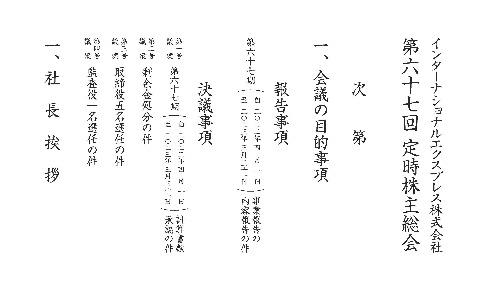 インターナショナルエクスプレス株式会社
第六十七回 定時株主総会
次 第
一、会議の目的事項
報告事項
第六十七期
事業報告の
内容報告の件
決議事項
第一号
議 案
第六十七期
計算書類
承認の件
第二号
議 案
剰余金処分の件
第三号
議 案
取締役五名選任の件
第四号
議 案
監査役一名選任の件
一、社 長 挨 拶